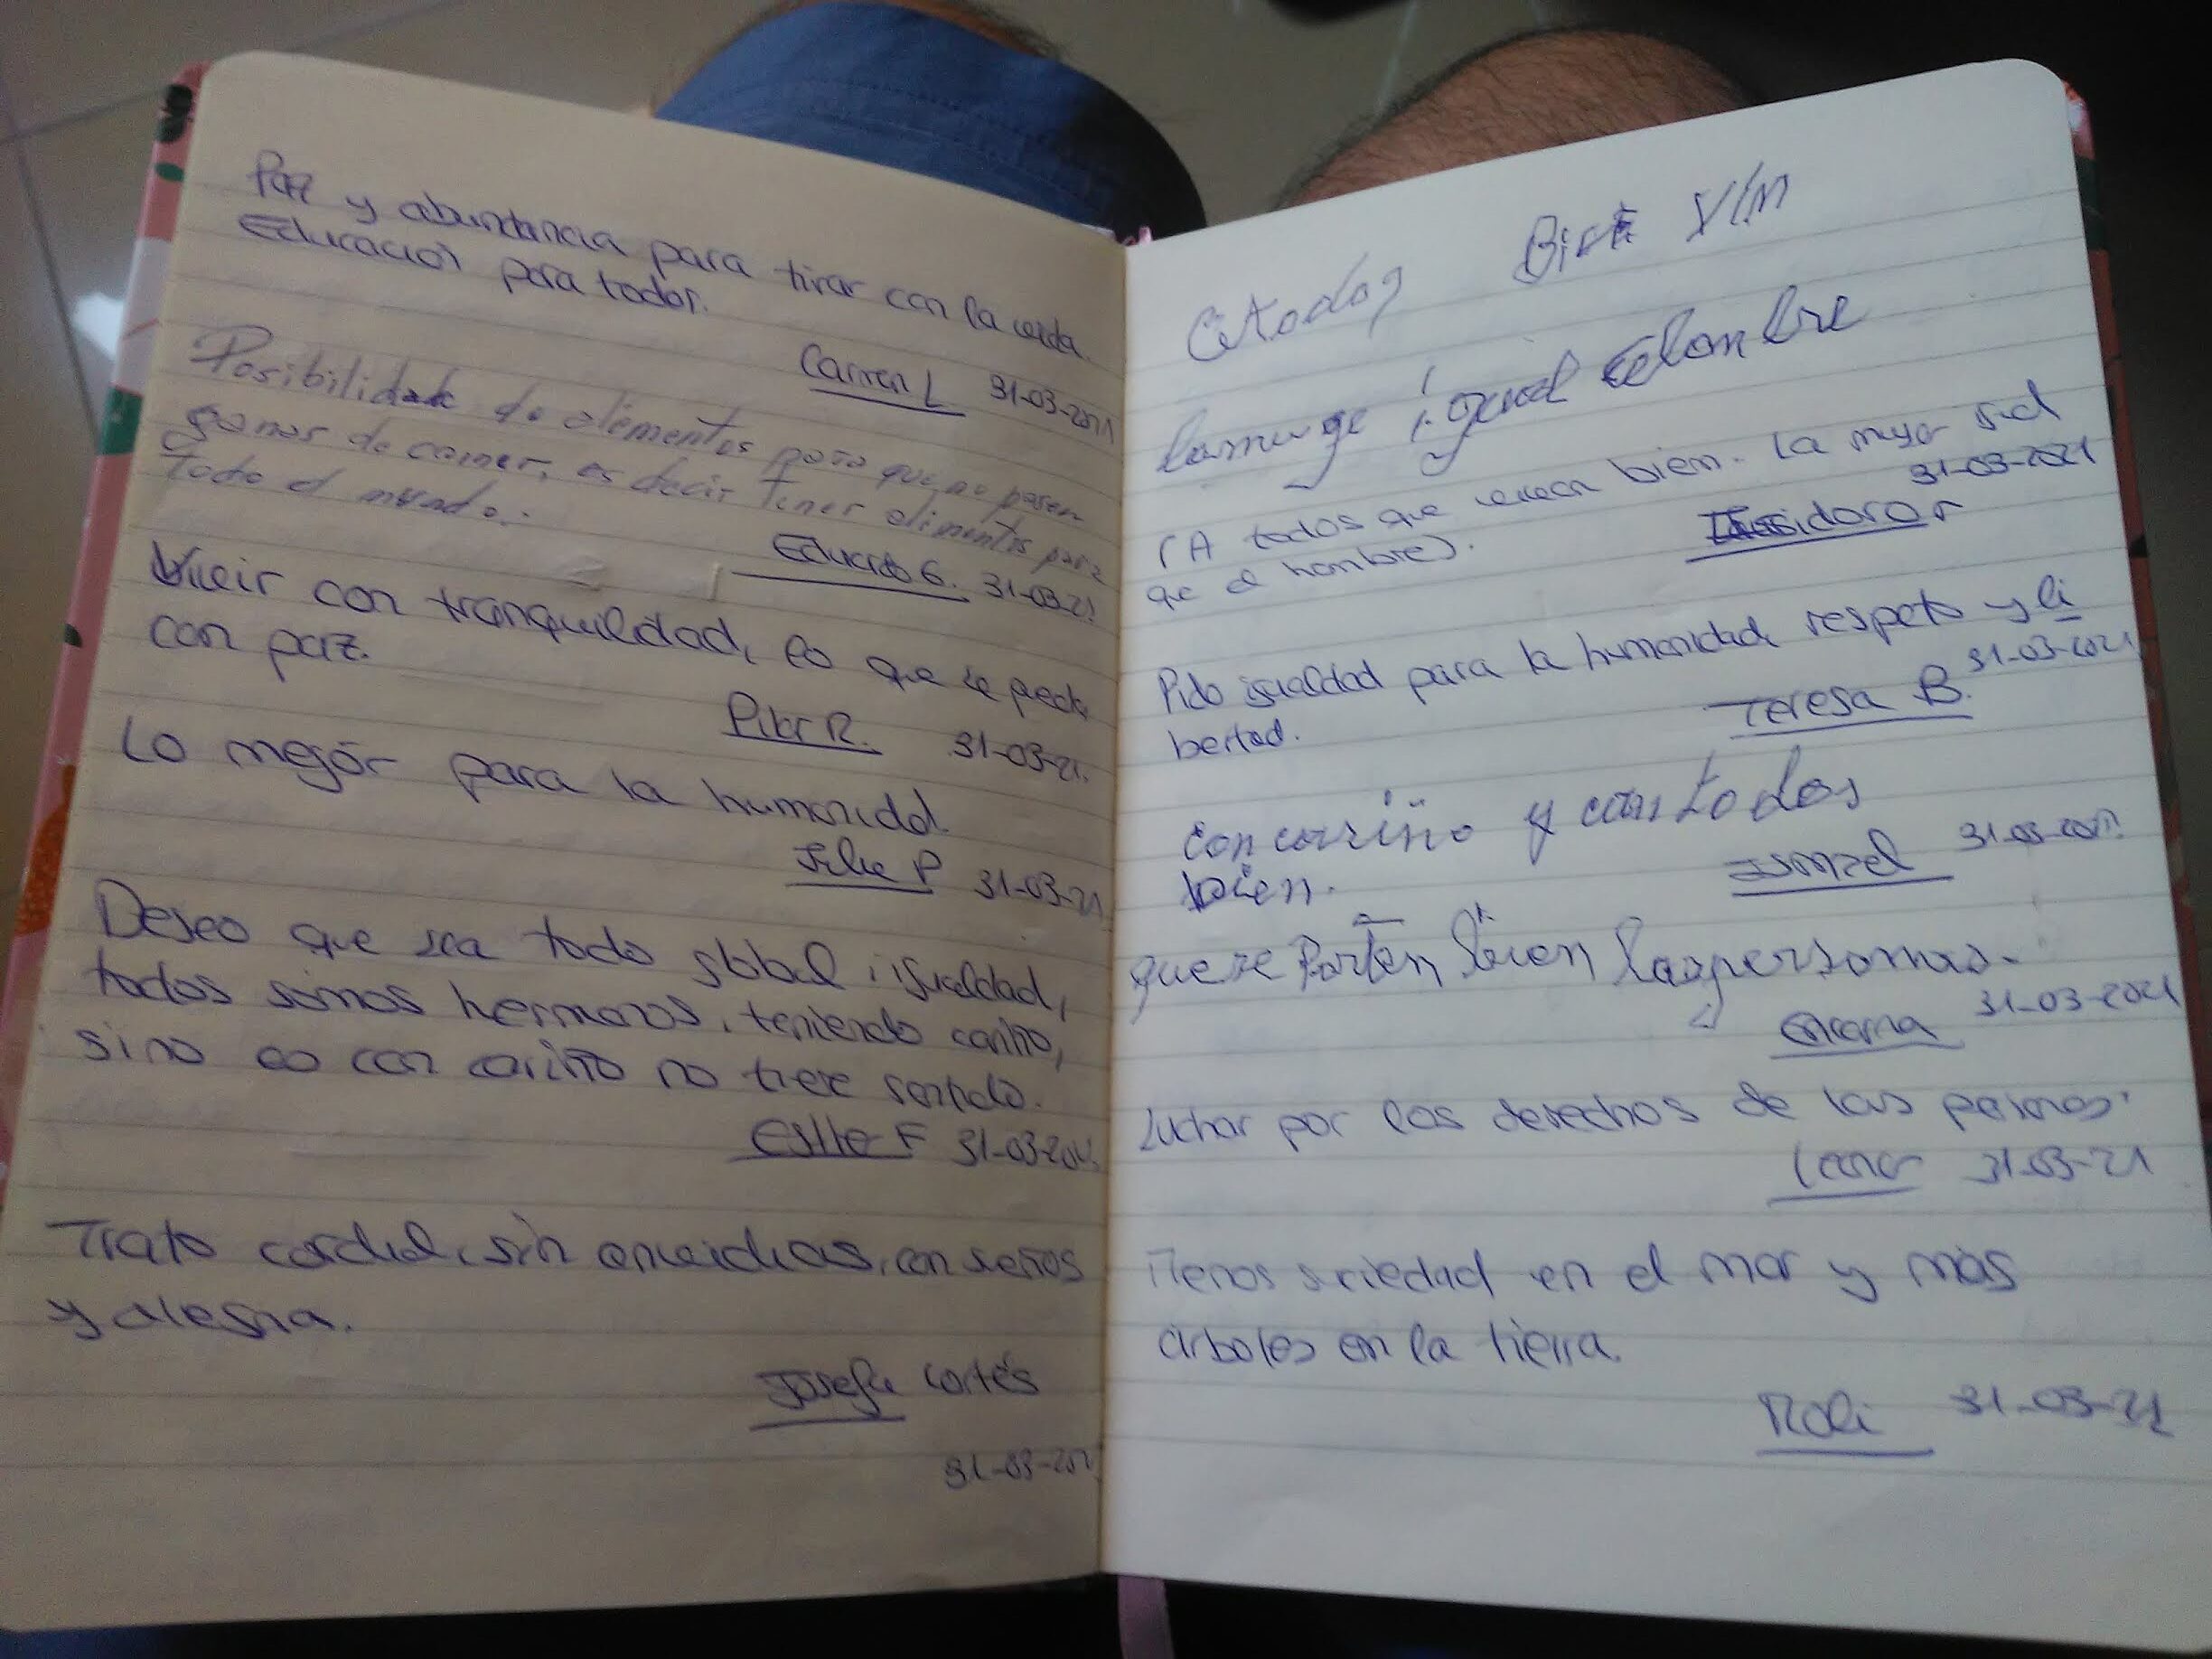 Paz y abundancia para tirar con la cerda.
Educación para todos.
Carmen L 31-03-2021
Posibilidade de elementos para que no pasen
ganas de comer, es decir tener alimentos para
todo el mundo.
Eduardo G. 31-03-21
Vivir con tranquilidad, lo que se pueda,
con paz.
Pilar R. 31-03-21.
Lo mejor para la humanidad.
P 31-03-21
Deseo que sea todo global, igualdad,
todos somos hermanos, teniendo cariño,
sino es con cariño no tiene sentido.
F 31-03-2021
Trato cordial, sin envidias, con
y alegria.
Josefa Cortés
31-03-2021
igual
(A todos que bien. La mujer
31-03-2021
que el hombre).
Pido igualdad para la humanidad, respeto y li
bertad.
31-03-2021
Teresa B.
Con cariño y con todos
bien.
Ismael 31-03-2021
que se Porten bien las personas.
Encarna 31-03-2021
Luchar por los derechos de las
Leonor 31-03-21
Menos suciedad en el mar y más
árboles en la tierra.
31-03-21